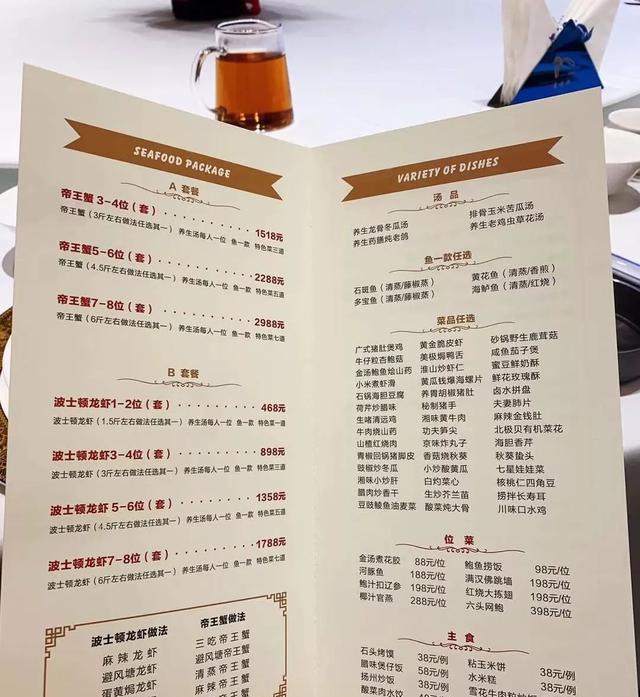 SEAFOOD PACKAGE
A 套餐
帝王蟹 3-4位（套）·········1518元
帝王蟹（3斤左右做法任选其一） 养生汤每人一位 鱼一款 特色菜三道
帝王蟹5-6位（套）·········2288元
帝王蟹（4.5斤左右做法任选其一） 养生汤每人一位 鱼一款 特色菜五道
帝王蟹7-8位（套）·········2988元
帝王蟹（6斤左右做法任选其一） 养生汤每人一位 鱼一款 特色菜七道
B 套餐
波士顿龙虾1-2位（套）·········468元
波士顿龙虾（1.5斤左右做法任选其一） 养生汤每人一位 鱼一款 特色菜三道
波士顿龙虾3-4位（套）·········898元
波士顿龙虾（3斤左右做法任选其一） 养生汤每人一位 鱼一款 特色菜三道
波士顿龙虾 5-6位（套）·········1358元
波士顿龙虾（4.5斤左右做法任选其一） 养生汤每人一位 鱼一款 特色菜五道
波士顿龙虾7-8位（套）·········1788元
波士顿龙虾（6斤左右做法任选其一） 养生汤每人一位 鱼一款 特色菜七道
波士顿龙虾做法 帝王蟹做法
麻辣龙虾 三吃帝王蟹
避风塘龙虾 避风塘帝王蟹
蛋黄焗龙虾 清蒸帝王蟹
麻辣帝王蟹
VARIETY OF DISHES
汤 品
养生龙骨冬瓜汤 排骨玉米苦瓜汤
养生药膳炖老鸽 养生老鸡虫草花汤
鱼一款任选
石斑鱼（清蒸/藤椒蒸） 黄花鱼（清蒸/香煎）
多宝鱼（清蒸/藤椒蒸） 海鲈鱼（清蒸/红烧）
菜品任选
广式猪肚煲鸡 黄金脆皮虾 砂锅野生鹿茸菇
牛仔粒杏鲍菇 美极焗鸭舌 咸鱼茄子煲
金汤鲍鱼烩山药 淮山炒虾仁 蜜豆鲜奶酥
小米煮虾滑 黄瓜钱爆海螺片 鲜花玫瑰酥
石锅海胆豆腐 养胃胡椒猪肚 卤水拼盘
荷芹炒腊味 秘制猪手 夫妻肺片
生啫清远鸡 湘味黄牛肉 麻辣金钱肚
牛肉烧山药 功夫笋尖 北极贝有机菜花
山楂红烧肉 京味炸丸子 海胆香芹
青椒回锅猪脚皮 香菇烧秋葵 秋葵蛰头
豉椒炒冬瓜 小炒酸黄瓜 七星娃娃菜
湘味小炒肝 白灼菜心 核桃仁四角豆
腊肉炒香干 生炒芥兰苗 捞拌长寿耳
豆豉鲮鱼油麦菜 酸菜炖大骨 川味口水鸡
位 菜
金汤煮花胶 88元/位 鲍鱼捞饭 98元/位
河豚鱼 188元/位 满汉佛跳墙 198元/位
鲍汁扣辽参 198元/位 红烧大拣翅 198元/位
椰汁官燕 288元/位 六头网鲍 398元/位
主 食
石头烤馍 38元/例 粘玉米饼 38元/例
腊味煲仔饭 58元/例 水米糕 38元/例
扬州炒饭 38元/例 雪花牛肉粒炒饭
酸菜肉水饺